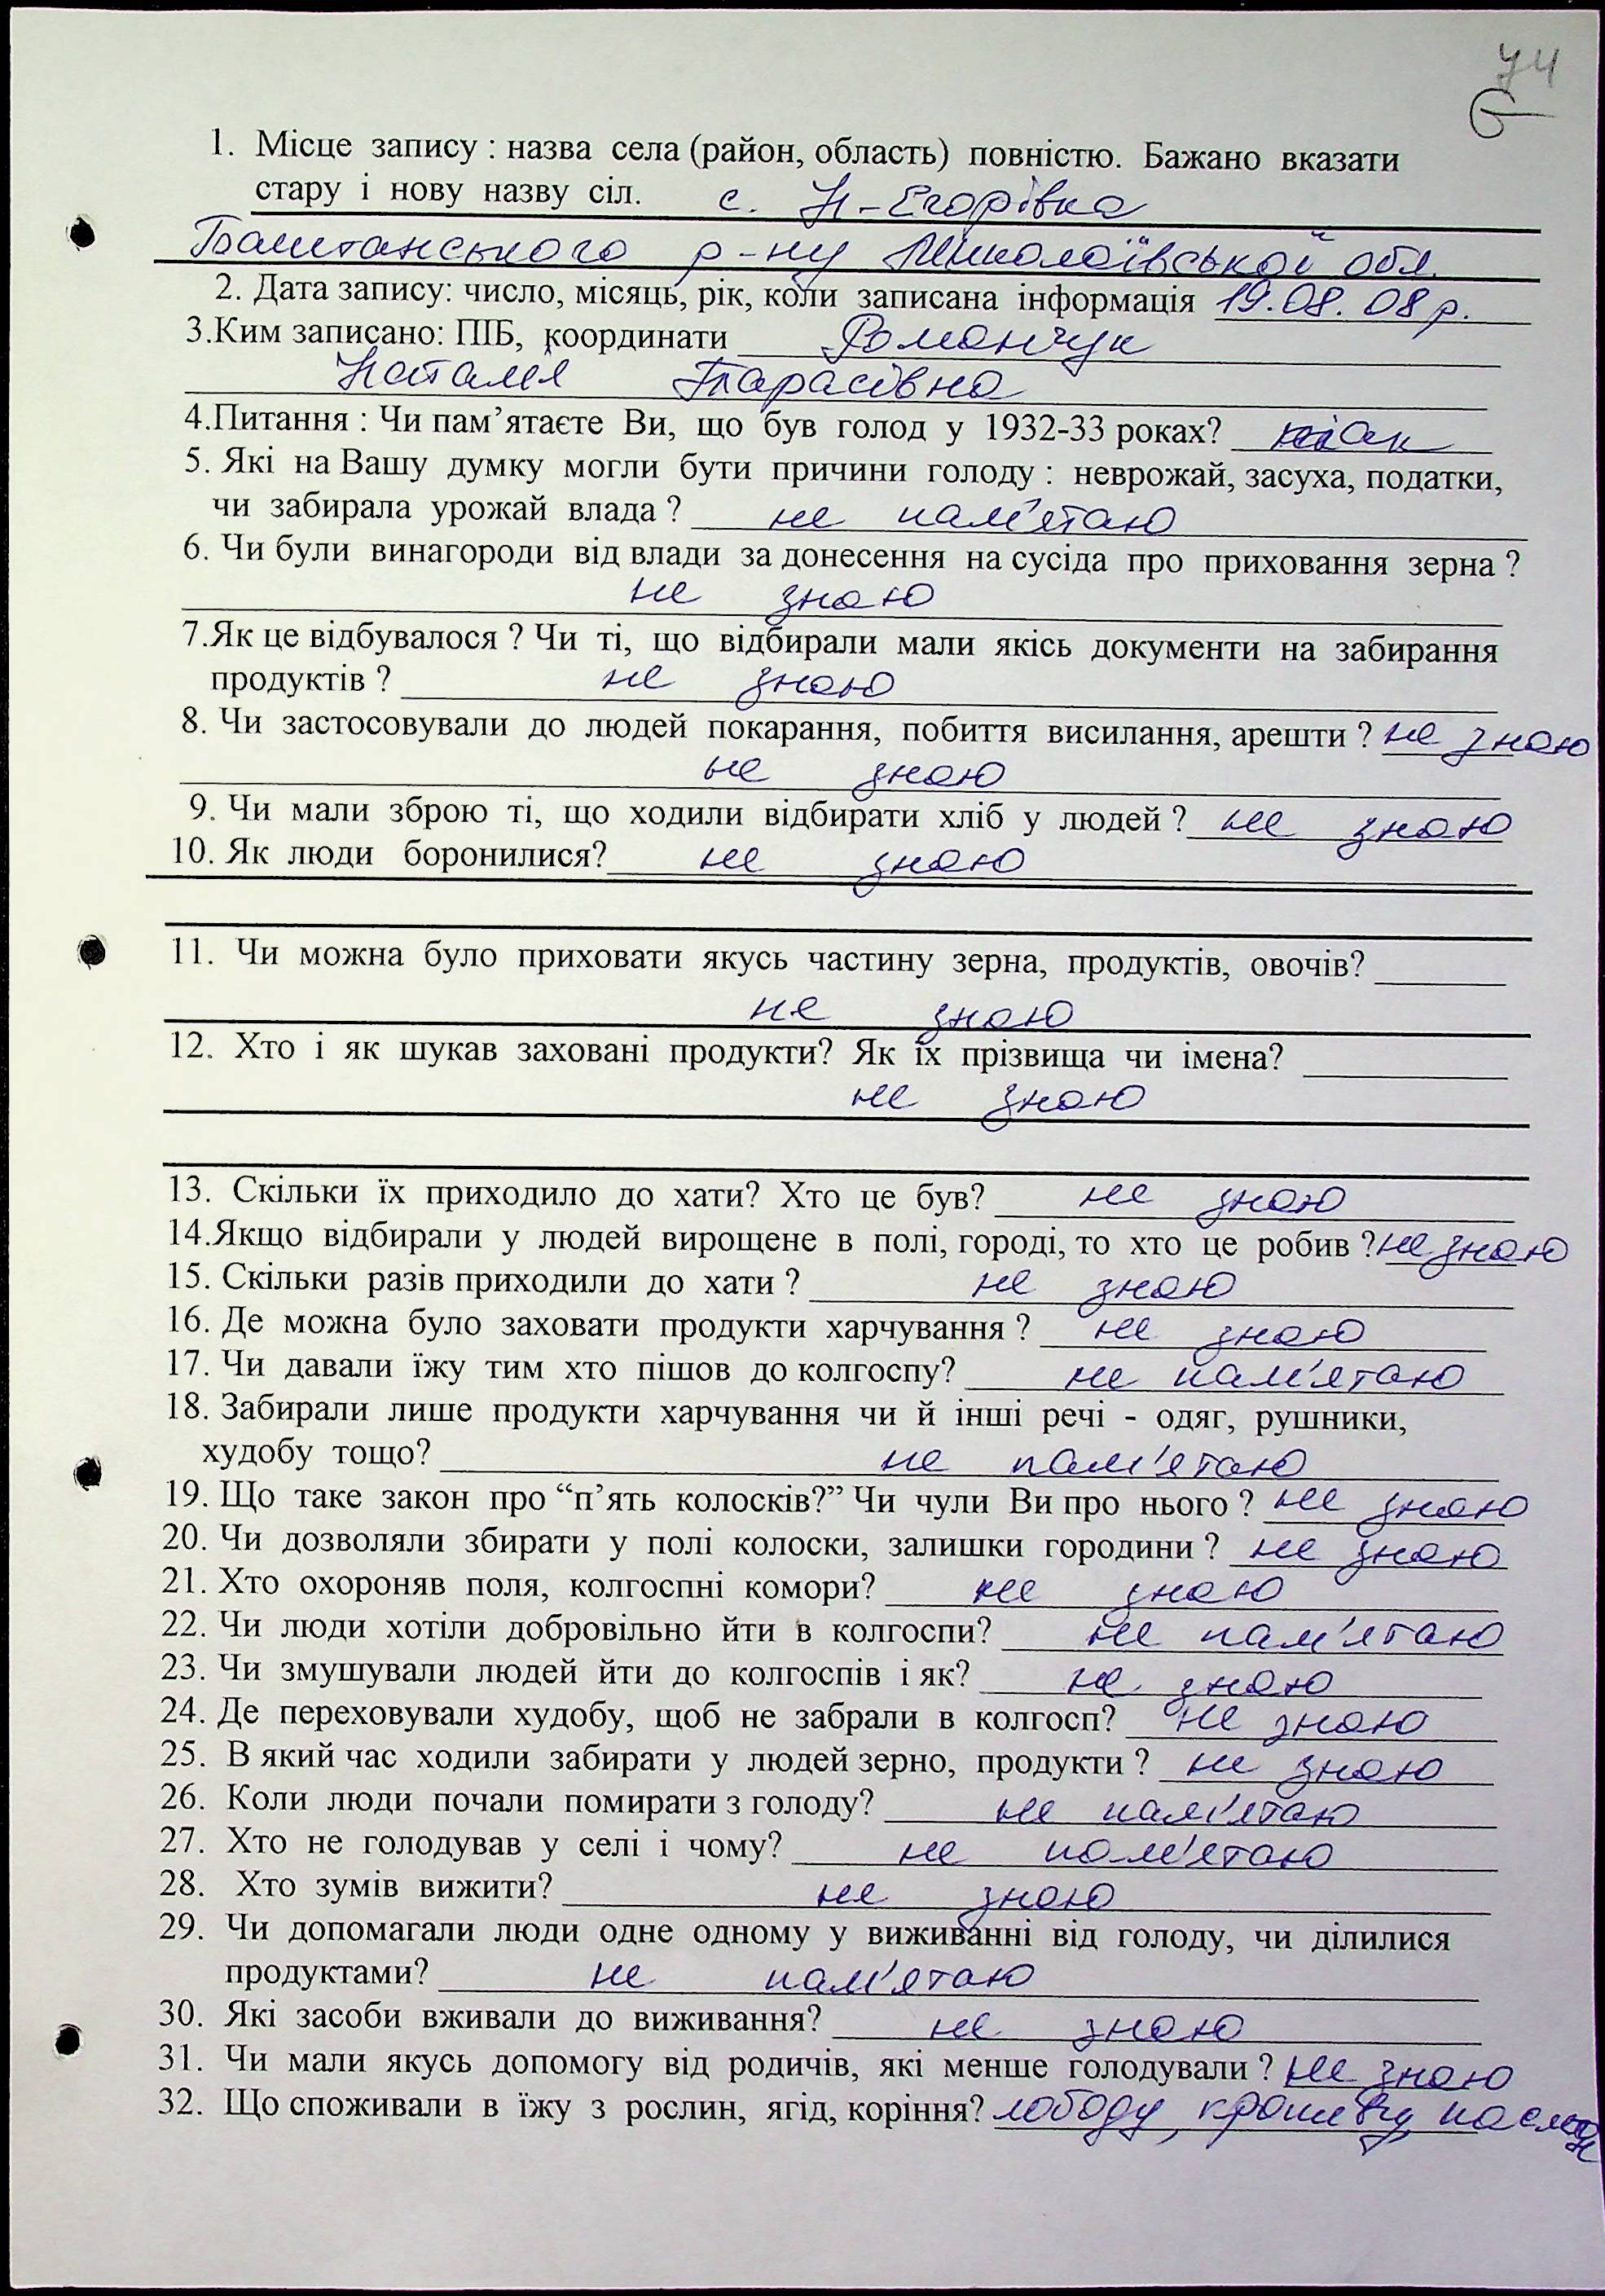 74
6
1. Місце запису : назва села (район, область) повністю. Бажано вказати
стару і нову назву сіл. с. Н-Єгорівка
Баштанського р-ну Миколаївської обл.
2. Дата запису: число, місяць, рік, коли записана інформація 19.08.08р.
3.Ким записано: ПІБ, координати Романчук
Наталія Тарасівна
4.Питання : Чи пам’ятаєте Ви, що був голод у 1932-33 роках? так
5. Які на Вашу думку могли бути причини голоду : неврожай, засуха, податки,
чи забирала урожай влада ? не пам'ятаю
6. Чи були винагороди від влади за донесення на сусіда про приховання зерна ?
не знаю
7.Як це відбувалося ? Чи ті, що відбирали мали якісь документи на забирання
продуктів ? не знаю
8. Чи застосовували до людей покарання, побиття висилання, арешти ? не знаю
не знаю
9. Чи мали зброю ті, що ходили відбирати хліб у людей ? не знаю
10. Як люди боронилися? не знаю
11. Чи можна було приховати якусь частину зерна, продуктів, овочів?
не знаю
12. Хто і як шукав заховані продукти? Як їх прізвища чи імена?
не знаю
13. Скільки їх приходило до хати? Хто це був? не знаю
14.Якщо відбирали у людей вирощене в полі, городі, то хто це робив ? не знаю
15. Скільки разів приходили до хати ? не знаю
16. Де можна було заховати продукти харчування ? не знаю
17. Чи давали їжу тим хто пішов до колгоспу? не пам'ятаю
18. Забирали лише продукти харчування чи й інші речі - одяг, рушники,
худобу тощо? не пам'ятаю
19. Що таке закон про “п’ять колосків?” Чи чули Ви про нього ? не знаю
20. Чи дозволяли збирати у полі колоски, залишки городини ? не знаю
21. Хто охороняв поля, колгоспні комори? не знаю
22. Чи люди хотіли добровільно йти в колгоспи? не пам'ятаю
23. Чи змушували людей йти до колгоспів і як? не знаю
24. Де переховували худобу, щоб не забрали в колгосп? не знаю
25. В який час ходили забирати у людей зерно, продукти ? не знаю
26. Коли люди почали помирати з голоду? не пам'ятаю
27. Хто не голодував у селі і чому? не пам'ятаю
28. Хто зумів вижити? не знаю
29. Чи допомагали люди одне одному у виживанні від голоду, чи ділилися
продуктами? не пам'ятаю
30. Які засоби вживали до виживання? не знаю
31. Чи мали якусь допомогу від родичів, які менше голодували ? не знаю
32. Що споживали в їжу з рослин, ягід, коріння? лободу, кропиву,